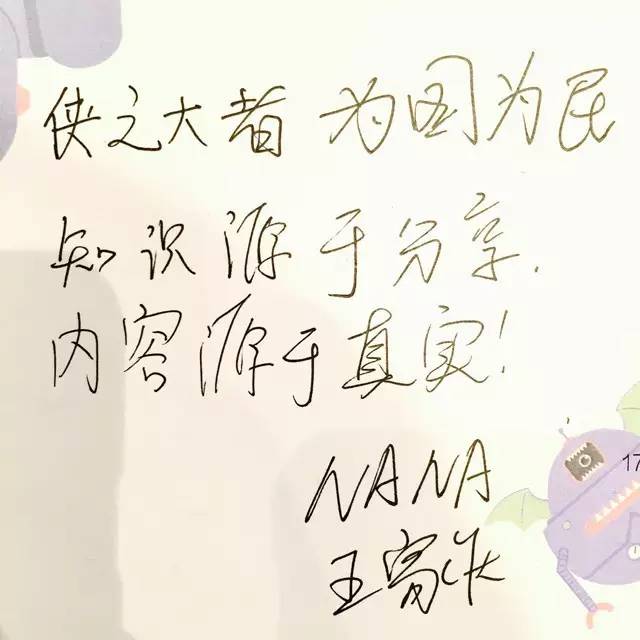 侠之大者 为国为民
知识源于分享.
内容源于真实!
17
NANA
王